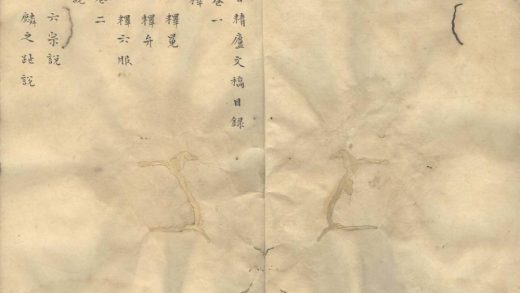 精廬文稿目錄
卷一
釋
釋冕
釋弁
釋六服
卷二
說
六宗說
麟之趾說